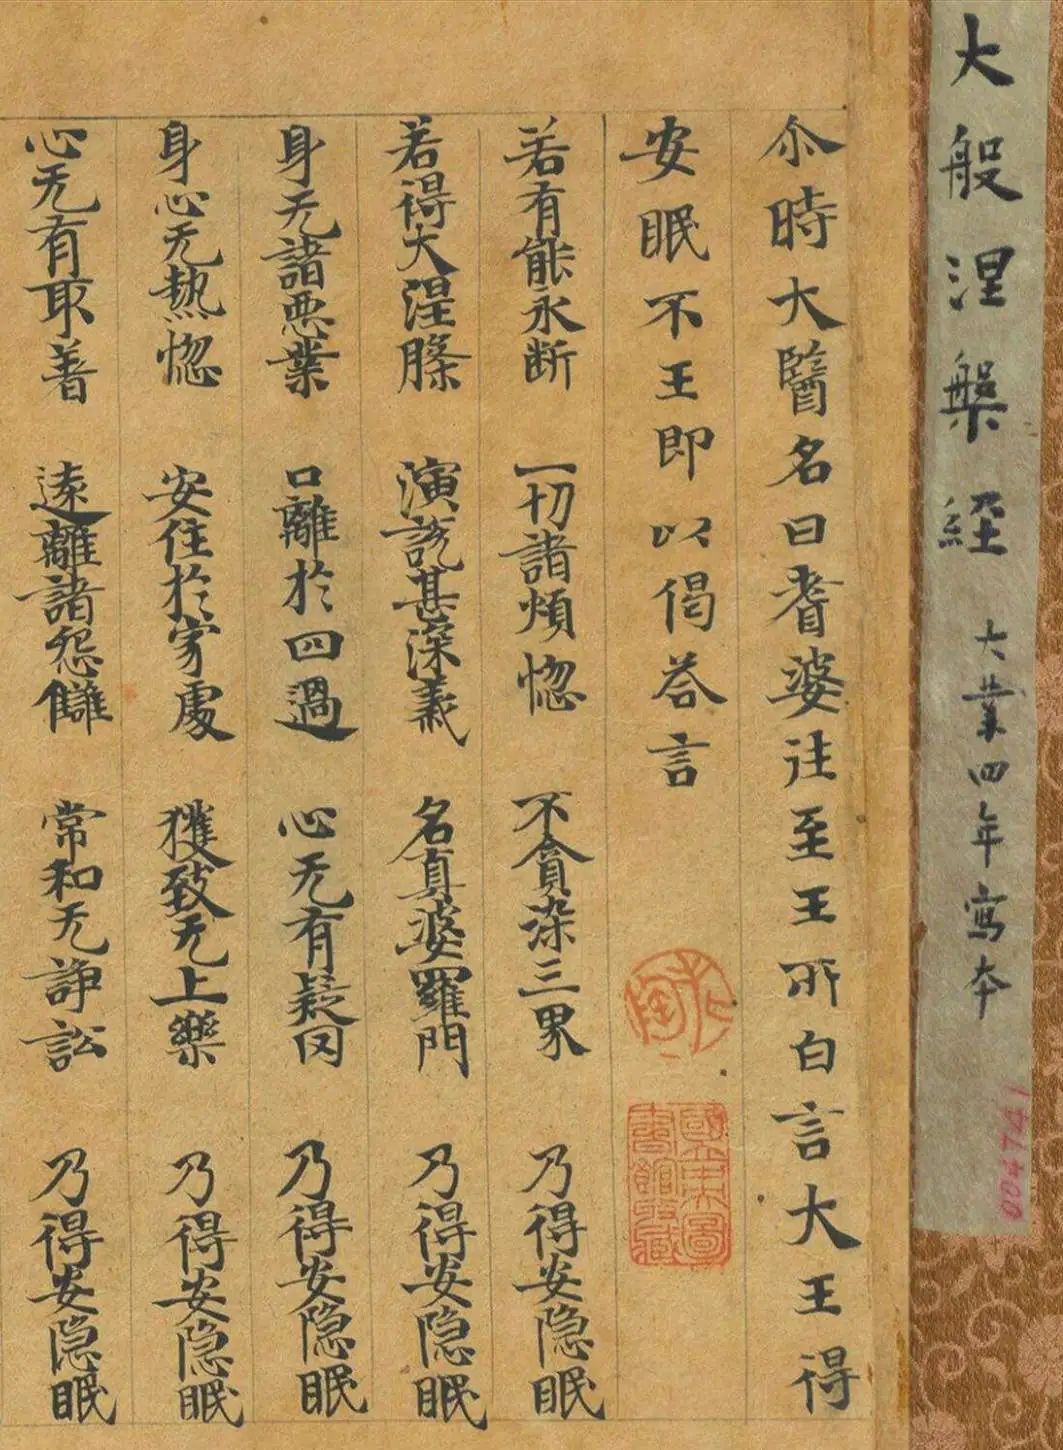 大般涅槃経 大業四年寫本
004741
尒時大醫名曰耆婆往至王所白言大王得
安眠不王即以偈荅言
國立中央圖書館收藏
若有能永断 一切諸煩惚 不貪染三界 乃得安隐眠
若得大涅槃 演説甚深義 名真婆羅門 乃得安隐眠
身无諸悪業 口離於四過 心无有疑冈 乃得安隐眠
身心无热惚 安住於穽處 獲致无上樂 乃得安隐眠
心无有取著 遠離諸怨讎 常和无諍訟 乃得安隐眠